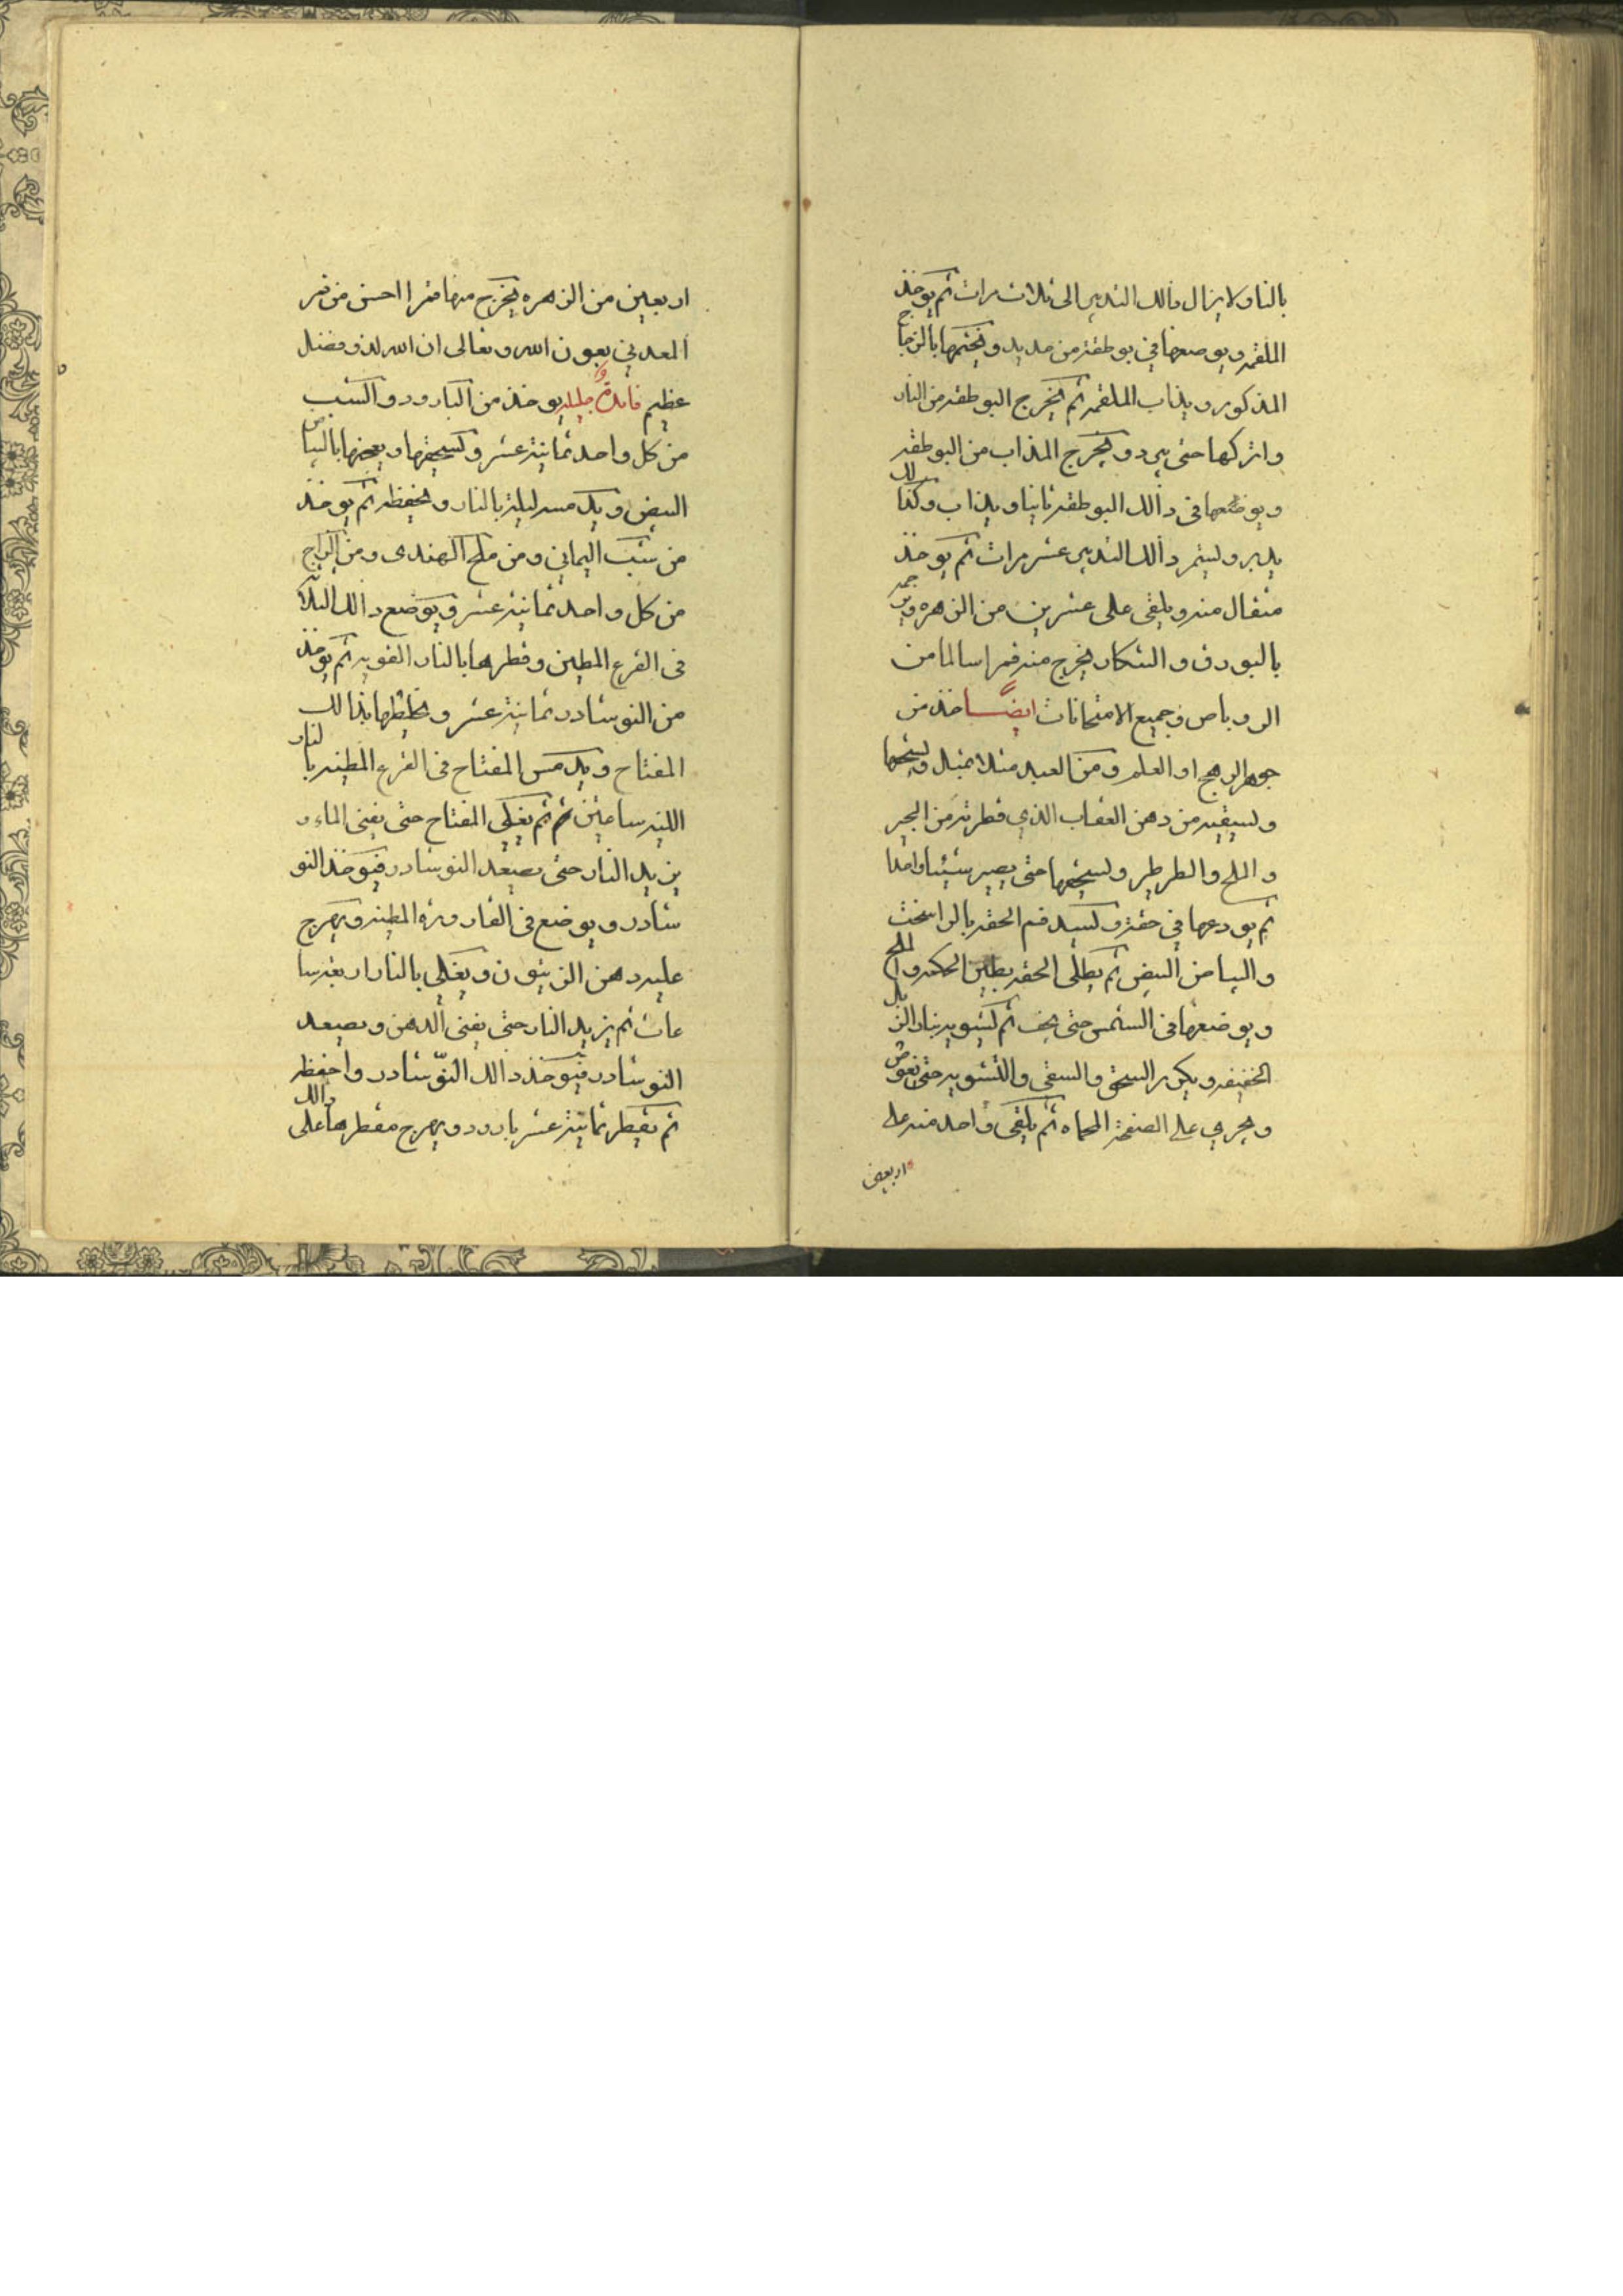 بالنار ولا يزال ذالك التدبير الى ثلاث مرات ثم يوخذ
الملقمه ويوضعها في بوطقة من حديد ويختمها بالزجاج
المذكور ويذاب الملقمه ثم يخرج البوطقه من النار
واتركها حتى يبرد ويخرج المذاب من البوطقه
ويوضعها في دالك البوطقه ثانيا ويذاب وكذالك
يدبر وليتمر دالك التدبير عشر مرات ثم يوخذ
مثقال منه ويلقى على عشرين من الزهره
بالبورق والتنكار يخرج منه قمرا سالما من
الروباص وجميع الامتحانات ايضا خذ من
جوهر الرهج او العلم ومن العبد مثلا بمثل ويسحقها
وليسقيه من دهن العقاب الذي قطرته من الجير
والملح والطرطير وليسحقها حتى يصير شيئا واحدا
ثم يودعها في حقة وليسد فم الحقه بالراسخت
والبياض البيض ثم يطلى الحقه بطين الحكمه والملح
ويوضعها في الشمس حتى يجف ثم ليشويه بنار الزبل
الخفيفه ويكرر السحق والسقي والتشويه حتى تغوص
ويجري على الصفحة المحماه ثم يلقى واحد منه على
اربعين
اربعين من الزهره يخرج منها قمرا احسن من قمر
المعدني بعون الله وتعالى ان الله لذو فضل
عظيم فائدة جليله يوخذ من البارود والشب
من كل واحد ثمانية عشر وليسحقها ويعجنها بالبياض
البيض ويدمسه ليلة بالنار ويحفظه ثم يوخذ
من شب اليماني ومن ملح الهندى ومن الزاج
من كل واحد ثمانية عشر ويوضع دالك الثلاث
في القرع المطين وقطرها بالنار القويه ثم يوخذ
من النوشادر ثمانية عشر ويخلطها بذالك
المفتاح ويدمس المفتاح في القرع المطينه بالنار
اللينه ساعتين ثم يغلى المفتاح حتى يفنى الماء و
يزيد النار حتى يصيعد النوشادر فيوخذ النو
شادر ويوضع في القاروره المطينه ويهرج
عليه دهن الزيتون ويغلى بالنار اربعة سا
عات ثم يزيد النار حتى يفنى الدهن ويصيعد
النوشادر فيوخذ دالك النوشادر واحفظه
ثم يقطر ثمانية عشر بارود ويهرج مقطرها على دالك